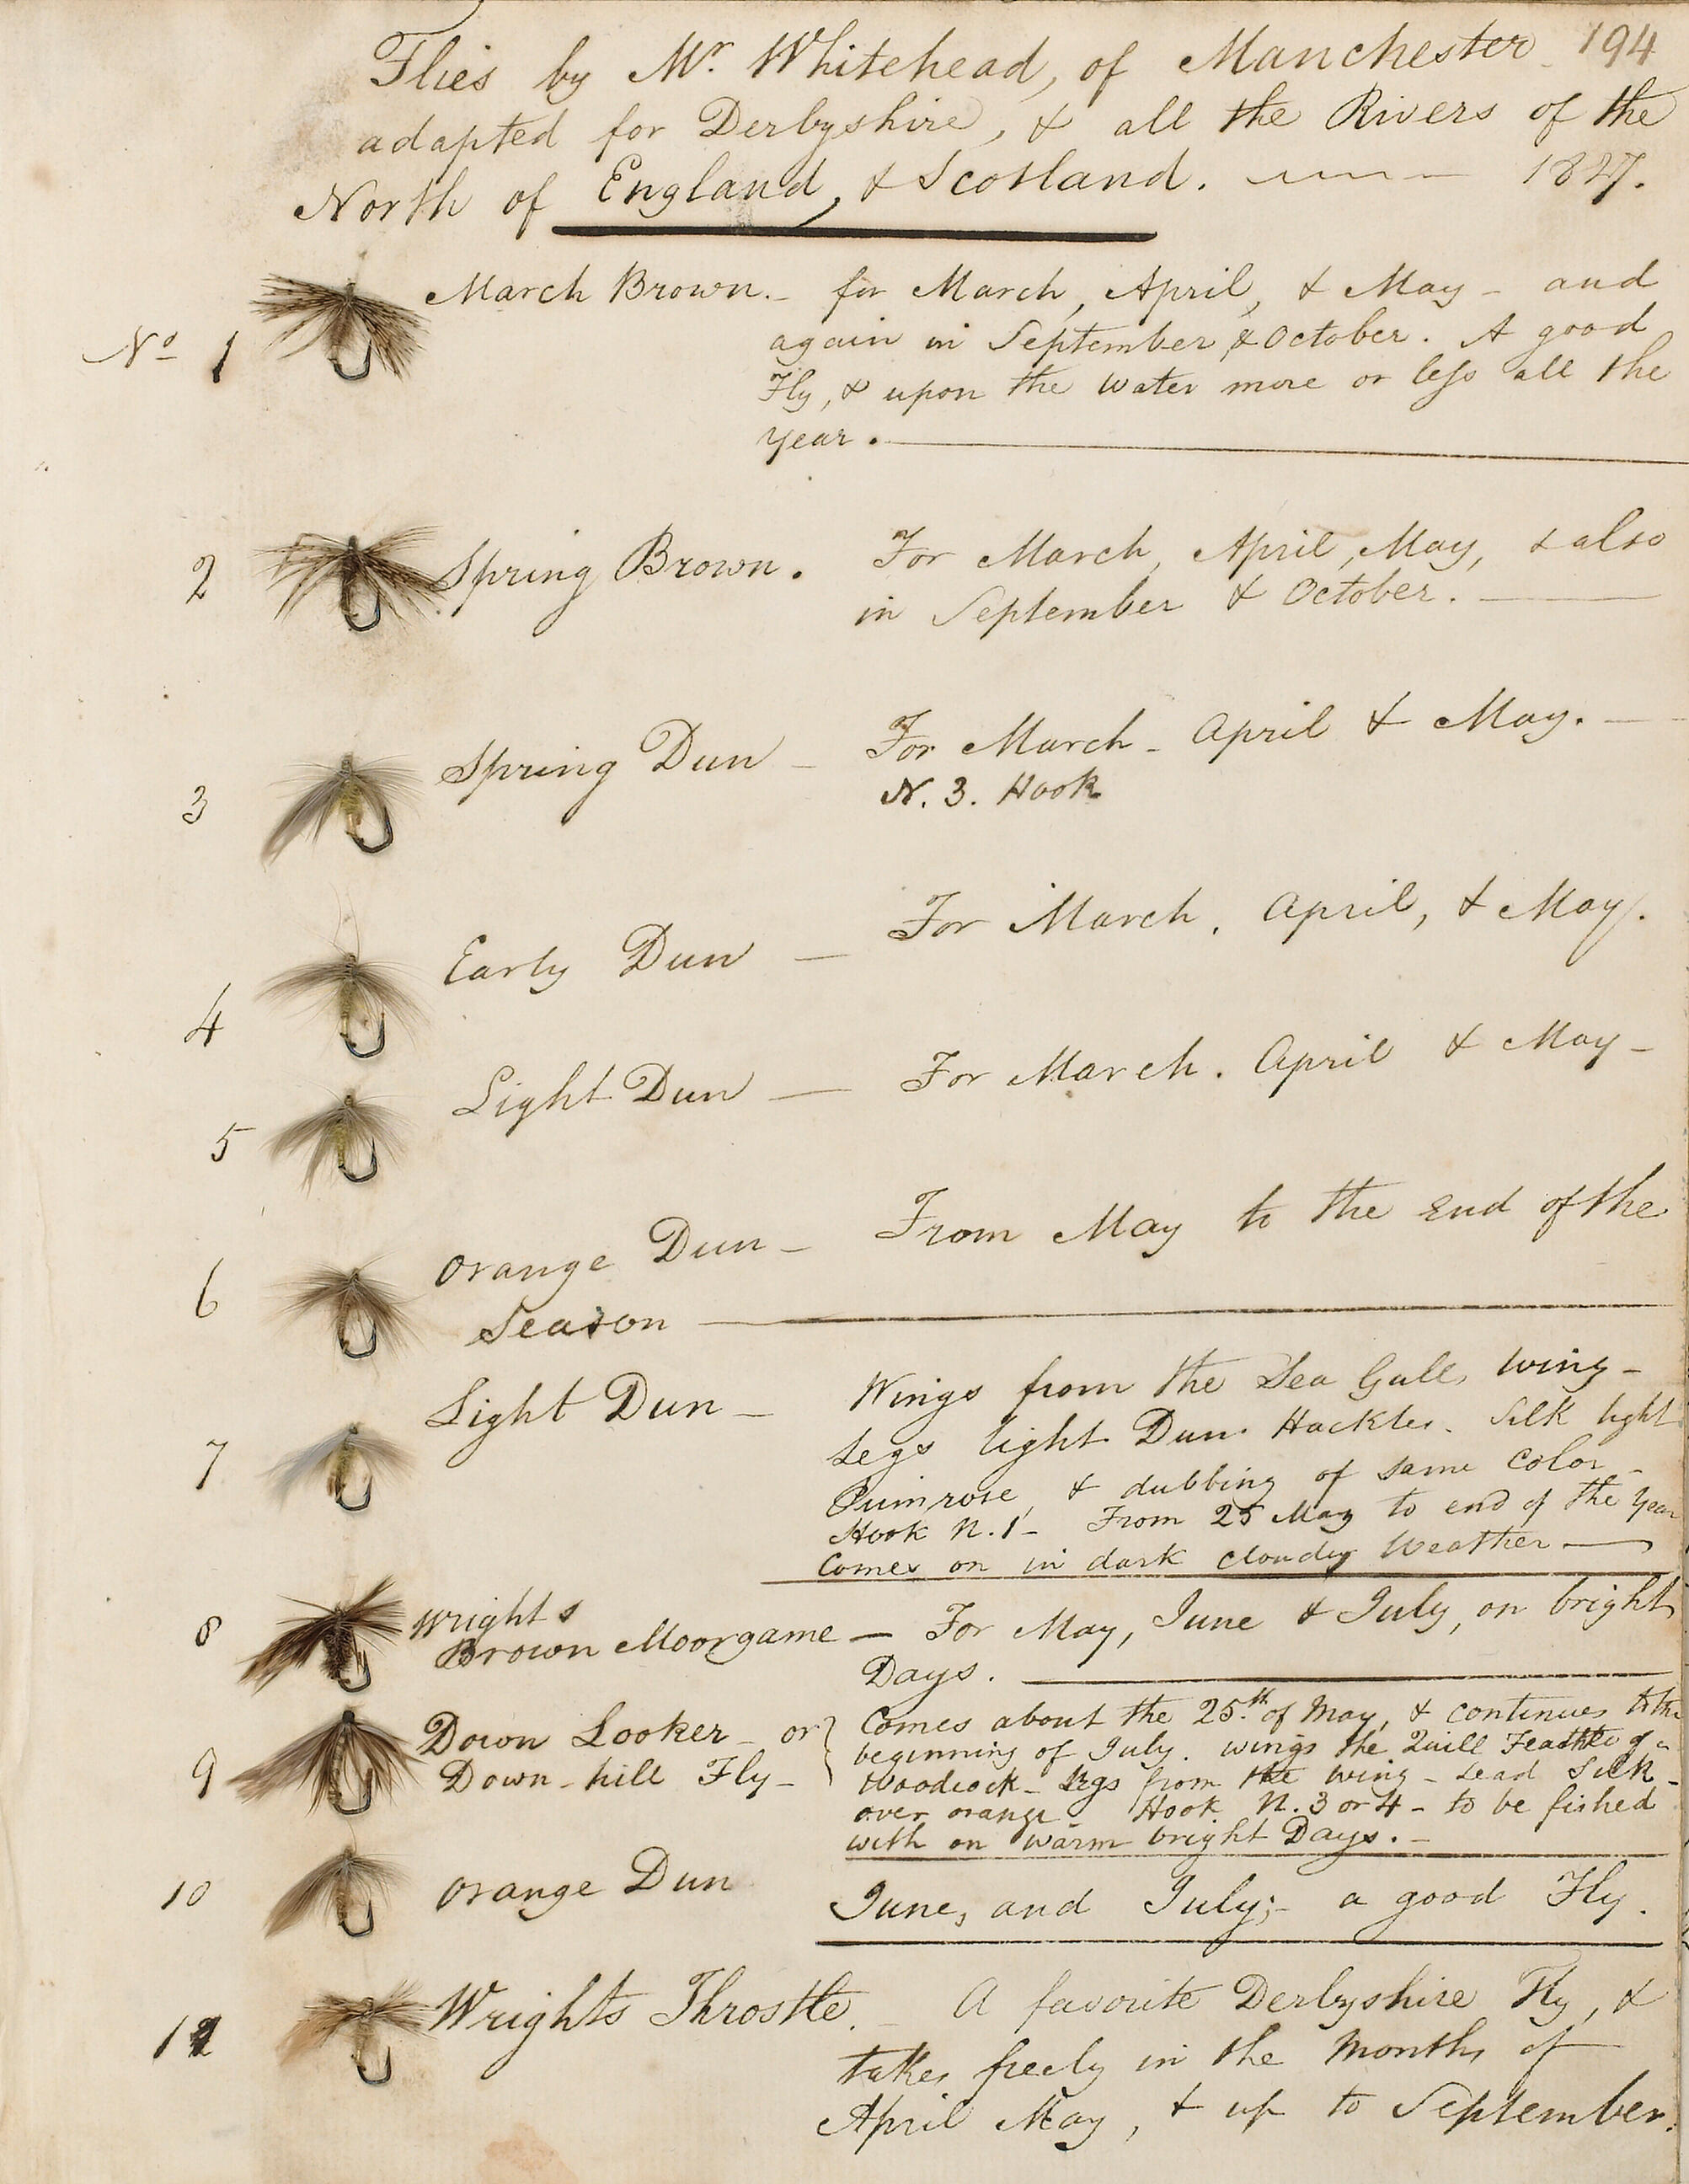 194
Flies by Mr. Whitehead, of Manchester
adapted for Derbyshire, & all the Rivers of the
North of England, & Scotland. 1827.
No 1 March Brown. - for March, April, & May - and
again in September & October. A good
Fly, & upon the water more or less all the
year.
2 Spring Brown. For March, April, May, & also
in September & October.
3 Spring Dun - For March - April & May.
N. 3. Hook
4 Early Dun - For March, April, & May.
5 Light Dun - For March. April & May -
6 Orange Dun - From May to the End of the
Season
7 Light Dun - Wings from the Sea Gull, wing -
Legs light Dun Hackles. Silk light
Primrose, & dubbing of same Color -
Hook N. 1 - From 25 May to end of the Year
Comes on in dark cloudy Weather
8 Wrights
Brown Moorgame - For May, June & July, on bright
Days.
9 Down Looker - or
Down-hill Fly -
Comes about the 25th of May, & continues to the
beginning of July. Wings the Quill Feather of a
Woodcock - Legs from the wing - Lead Silk -
over orange - Hook N. 3 or 4 - to be fished
with on warm bright Days. -
10 Orange Dun June, and July;- a good Fly.
Wrights Throstle. - A favorite Derbyshire Fly, &
takes freely in the Months of
April May, & up to September.